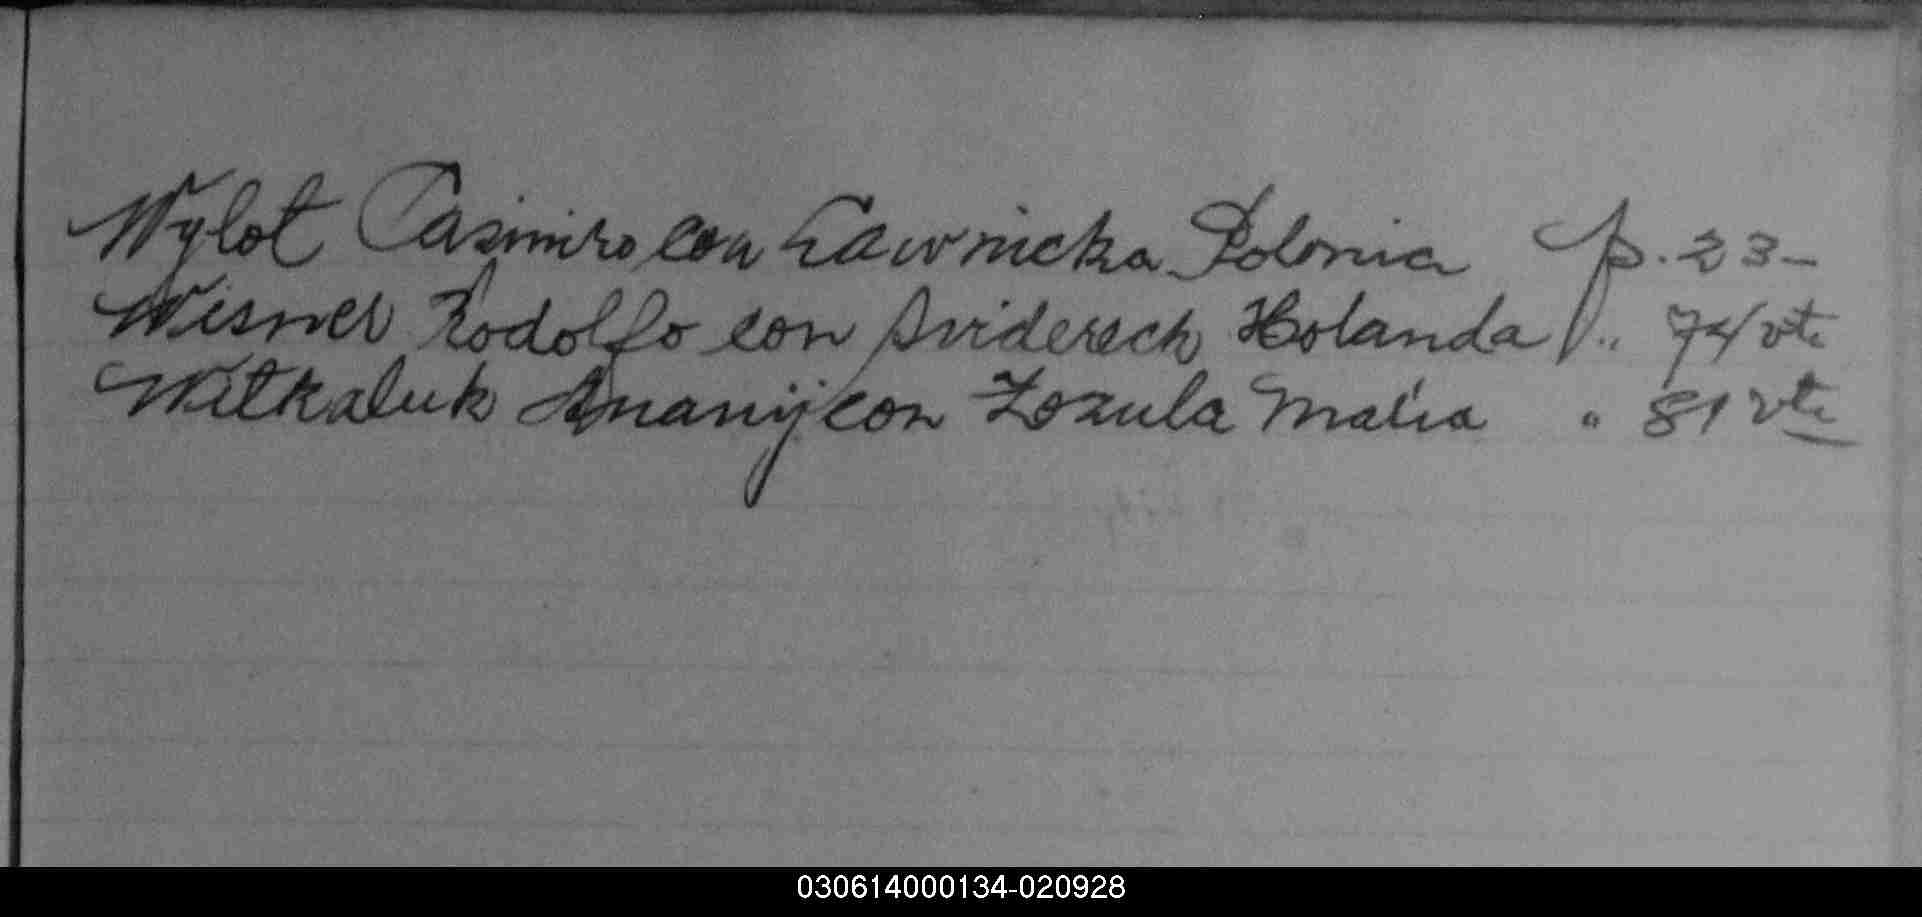 Wylot Casimiro con Lawnicka Polonia p. 23-
Wisner Rodolfo con Holanda " 74 vta
Witkaluk Ananij con Zozula Maria " 81 vta
030614000134-020928